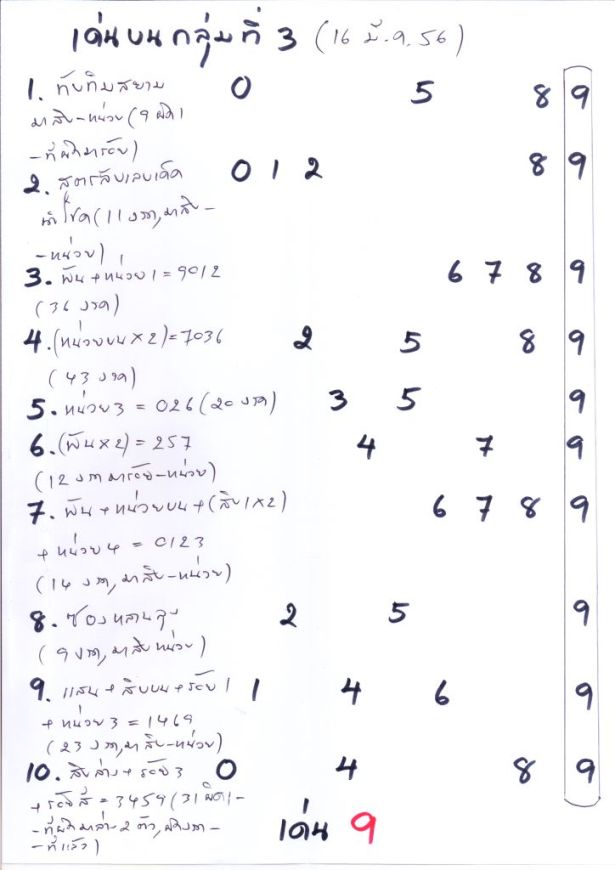 เด่นบนกลุ่มที่ 3 (16 มี.ค.56)
1. ทับทิมสยาม 0 5 8 9
มาสิบ-หน่วย (9 ผิด 1
-ที่ผิดมาร้อย)
2. สูตรลับเลขเด็ด 0 1 2 8 9
นำโชค (11 งวด, มาสิบ-
-หน่วย)
3. พัน + หน่วย 1 = 9012 6 7 8 9
(36 งวด)
4. (หน่วยบน x 2) = 7036 2 5 8 9
(43 งวด)
5. หน่วย 3 = 026 (20 งวด) 3 5 9
6. (พัน x 2) = 257 4 7 9
(12 งวด มาร้อย-หน่วย)
7. พัน + หน่วยบน + (สิบ 1 x 2) 6 7 8 9
+ หน่วย 4 = 0123
(14 งวด, มาสิบ-หน่วย)
8. ซองหลานลุง 2 5 9
(9 งวด, มาสิบหน่วย)
9. แสน + สิบบน + ร้อย 1 1 4 6 9
+ หน่วย 3 = 1469
(23 งวด, มาสิบ-หน่วย)
10. สิบล่าง + ร้อย 3 0 4 8 9
+ ร้อย 5 = 3459 (31 ผิด 1-
-ที่ผิดมาล่าง 2 ตัว, ผิดงวด-
-ที่แล้ว)
เด่น 9